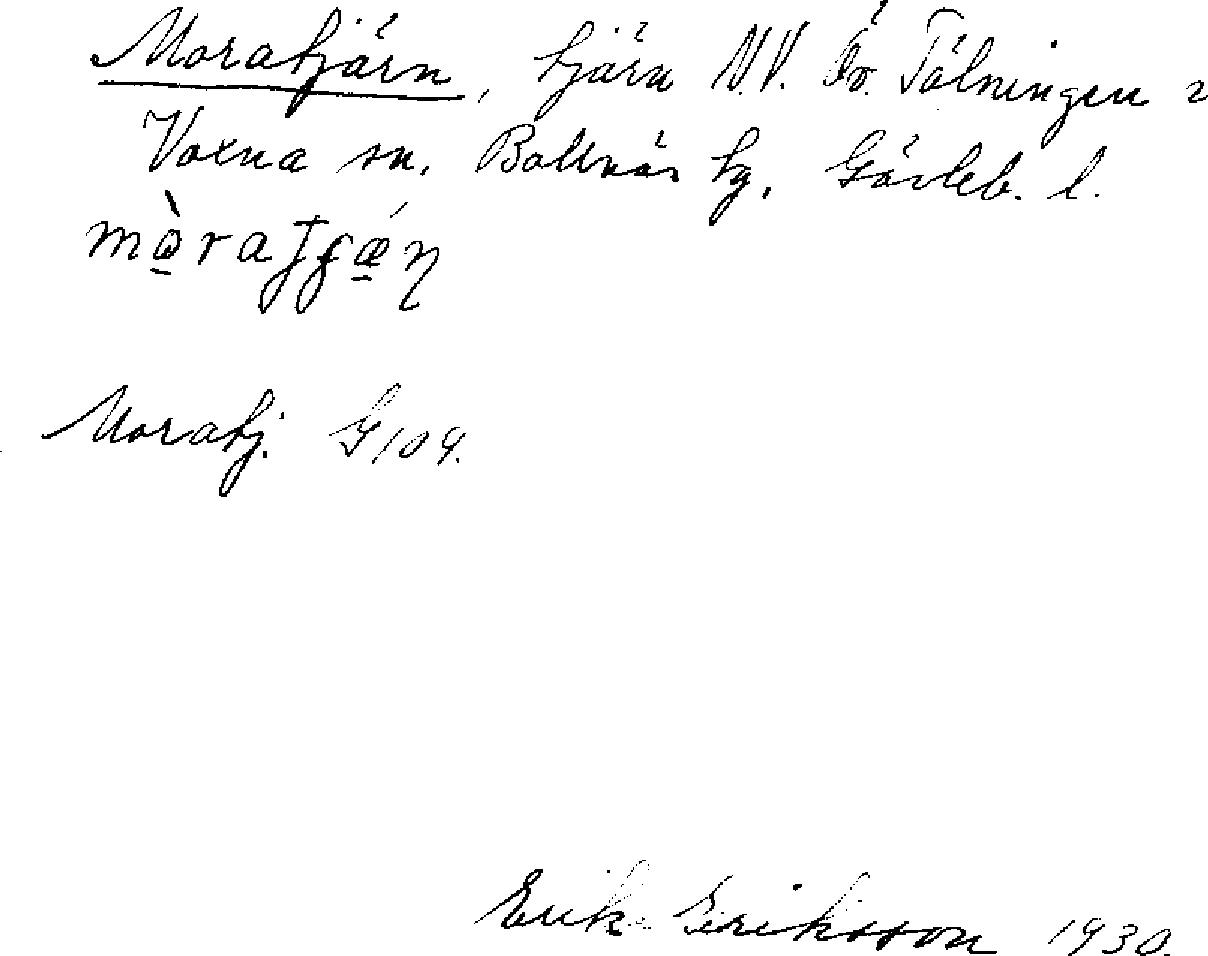 Moratjärn, tjärn N.V. Öv. Tälningen i
Voxna sn. Bollnäs tg, Gävleb. l.
mò̠ratʃǽ̠ɳ
Moratj. G 109.
Erik Eriksson 1930.